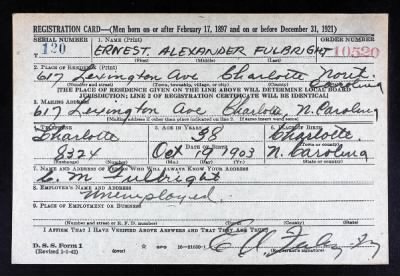 REGISTRATION CARD—(Men born on or after February 17, 1897 and on or before December 31, 1921)
SERIAL NUMBER 1. NAME (Print) ORDER NUMBER
120 ERNEST ALEXANDER FULBRIGHT 10520
(First) (Middle) (Last)
2. PLACE OF RESIDENCE (Print)
617 Lexington Ave Charlotte North Carolina
(Number and street) (Town, township, village, or city) (County) (State)
[THE PLACE OF RESIDENCE GIVEN ON THE LINE ABOVE WILL DETERMINE LOCAL BOARD
JURISDICTION; LINE 2 OF REGISTRATION CERTIFICATE WILL BE IDENTICAL]
3. MAILING ADDRESS
617 Lexington Ave Charlotte N. Carolina
[Mailing address if other than place indicated on line 2. If same insert word same]
4. TELEPHONE 5. AGE IN YEARS 6. PLACE OF BIRTH
Charlotte 38 Charlotte
DATE OF BIRTH
8324 Oct 19 1903 N. Carolina
7. NAME AND ADDRESS OF PERSON WHO WILL ALWAYS KNOW YOUR ADDRESS
C. M. Fulbright
8. EMPLOYER'S NAME AND ADDRESS
Unemployed.
9. PLACE OF EMPLOYMENT OR BUSINESS
(Number and street or R. F. D. number) (Town) (County) (State)
I AFFIRM THAT I HAVE VERIFIED ABOVE ANSWERS AND THAT THEY ARE TRUE.
D. S. S. Form 1
(Revised 1-1-42) (over)